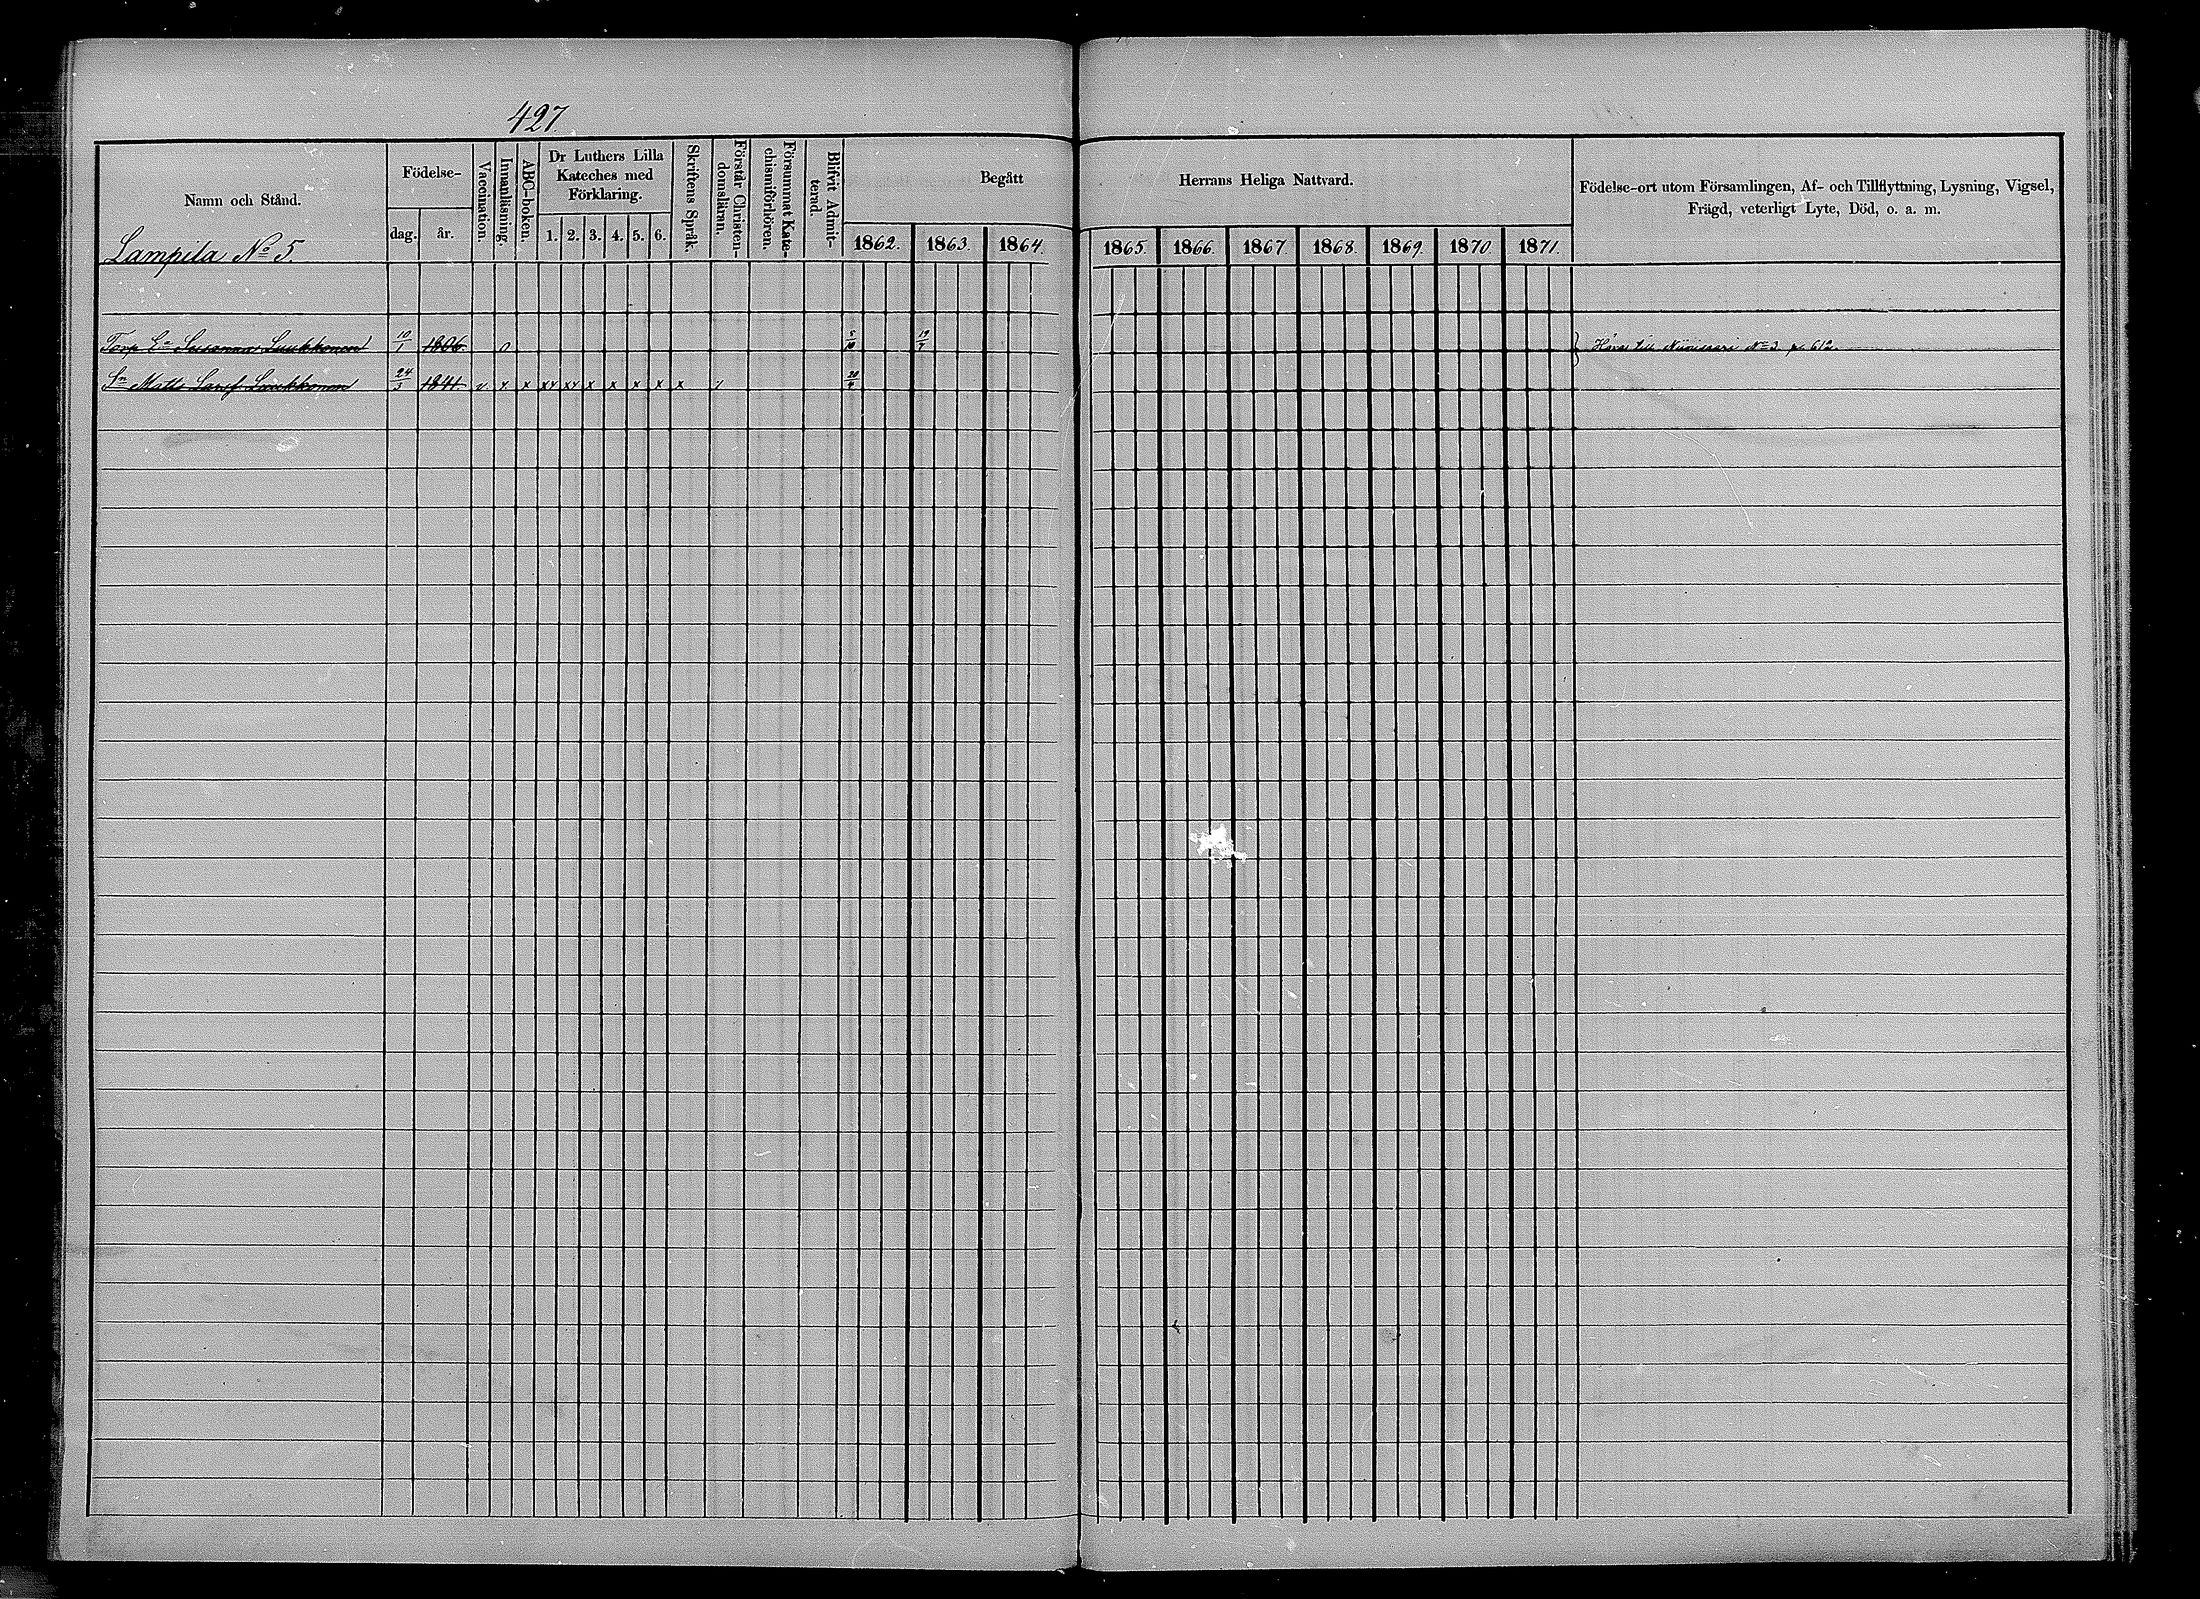 427.
Namn och Stånd.
Födelse-
dag.
år.
Vaccination.
Innanläsning.
ABC-boken.
Dr Luthers Lilla
Kateches med
Förklaring.
1. 2. 3. 4. 5. 6.
Skriftens Språk.
Förstår Christen-
domsläran.
Försummat Kate-
chismiförhören.
Blifvit Admit-
terad.
Begått
Herrans Heliga Nattvard.
1862. 1863. 1864. 1865. 1866. 1867. 1868. 1869. 1870. 1871.
Födelse-ort utom Församlingen, Af- och Tillflyttning, Lysning, Vigsel,
Frägd, veterligt Lyte, Död, o. a. m.
Lampila No 5.
Torp Ea Susanna Laukkonen 10/1 1806. 5/10 19/7 Höra till No 3 p. 612.
Sn Matts Laukkonen 24/3 1841. v x x xx xx x x x x x 20/4